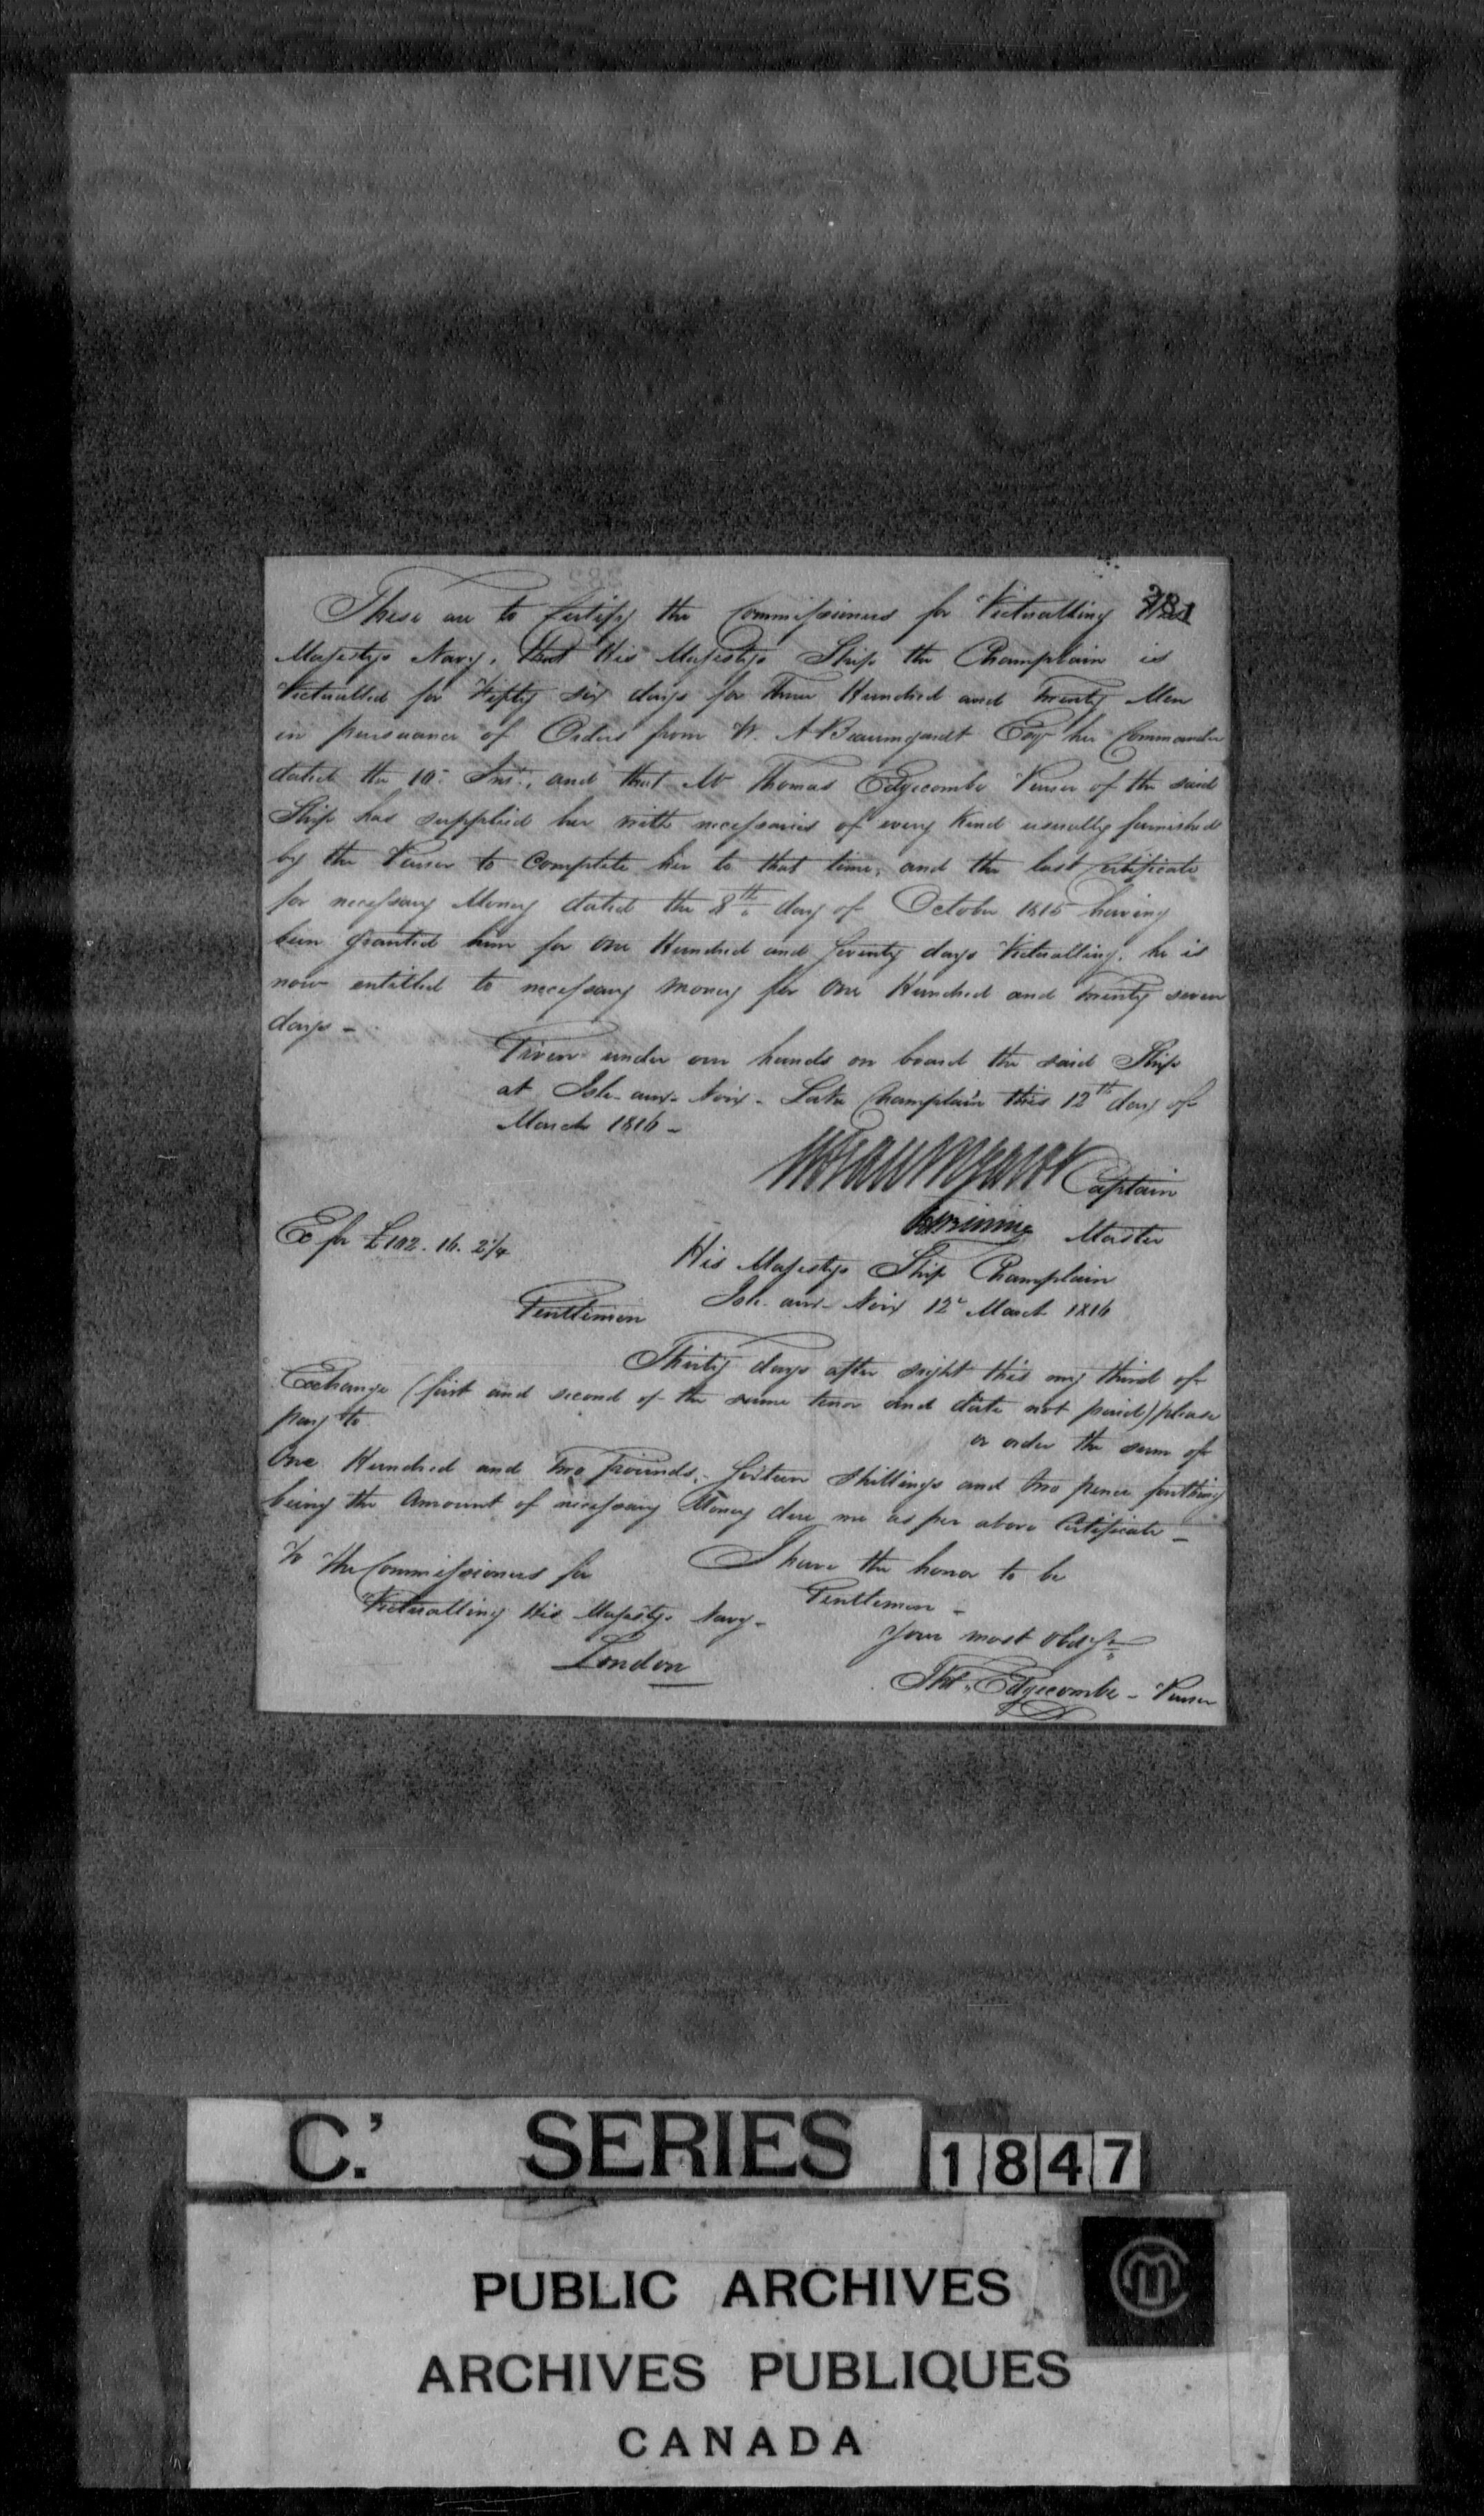 281
These are to Certify the Commissioners for Victualling His
Majestys Navy, that His Majestys Ship the Champlain is
Victualled for Fifty six days for Three Hundred and Twenty Men
in pursuance of Orders from W. A Baumgardt Esqr her Commander
dated the 10th Inst., and that Mr Thomas Edgecombe Purser of the said
Ship has supplied her with necessaries of every Kind usually furnished
by the Purser to Complete her to that time, and the last Certificate
for necessary Money dated the 8th day of October 1815 having
been granted him for One Hundred and Seventy days Victualling, he is
now entitled to necessary Money for One Hundred and Twenty seven
days -
Given under our hands on board the said Ship
at Isle-aux-Noix - Lake Champlain this 12th day of
March 1816 -
Captain
Master
Ex for £102. 16. 2¼
His Majestys Ship Champlain
Isle-aux-Noix 12th March 1816
Gentlemen
Thirty days after sight this my third of
Exchange (first and second of the same tenor and date not paid) please
pay to
or order the sum of
One Hundred and Two Pounds, Sixteen Shillings and two pence farthing
being the Amount of necessary Money due me as per above Certificate -
To The Commissioners for
Victualling His Majestys Navy -
London
I have the honor to be
Gentlemen -
Your most Obdt
Thos. Edgecombe - Purser
C.' SERIES 1847
PUBLIC ARCHIVES
ARCHIVES PUBLIQUES
CANADA